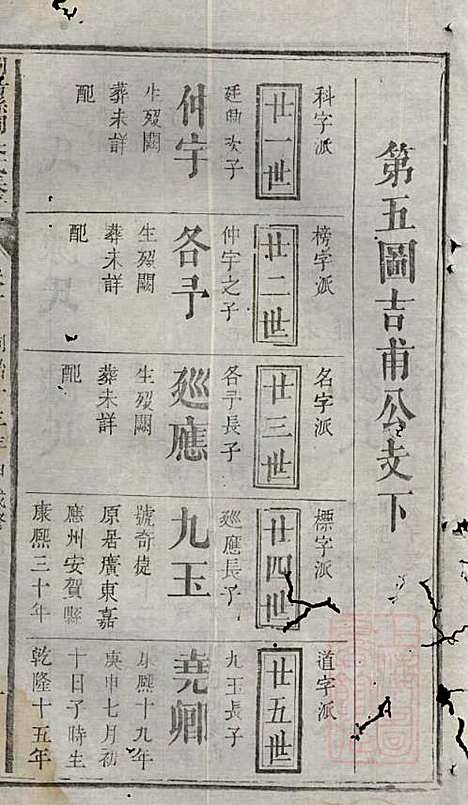 第五圖吉甫公支下
科字派
廿一世
廷勛次子
仲宇
生歿闕
葬未詳
配
榜字派
廿二世
仲宇之子
各予
生歿闕
葬未詳
配
名字派
廿三世
各予長子
廵應
生歿闕
葬未詳
配
標字派
廿四世
廵應長子
九玉
號奇捷
原居廣東嘉
應州安賀縣
康熙二十年
道字派
廿五世
九玉長子
堯卿
康熙十九年
庚申七月初
十日子時生
乾隆十五年